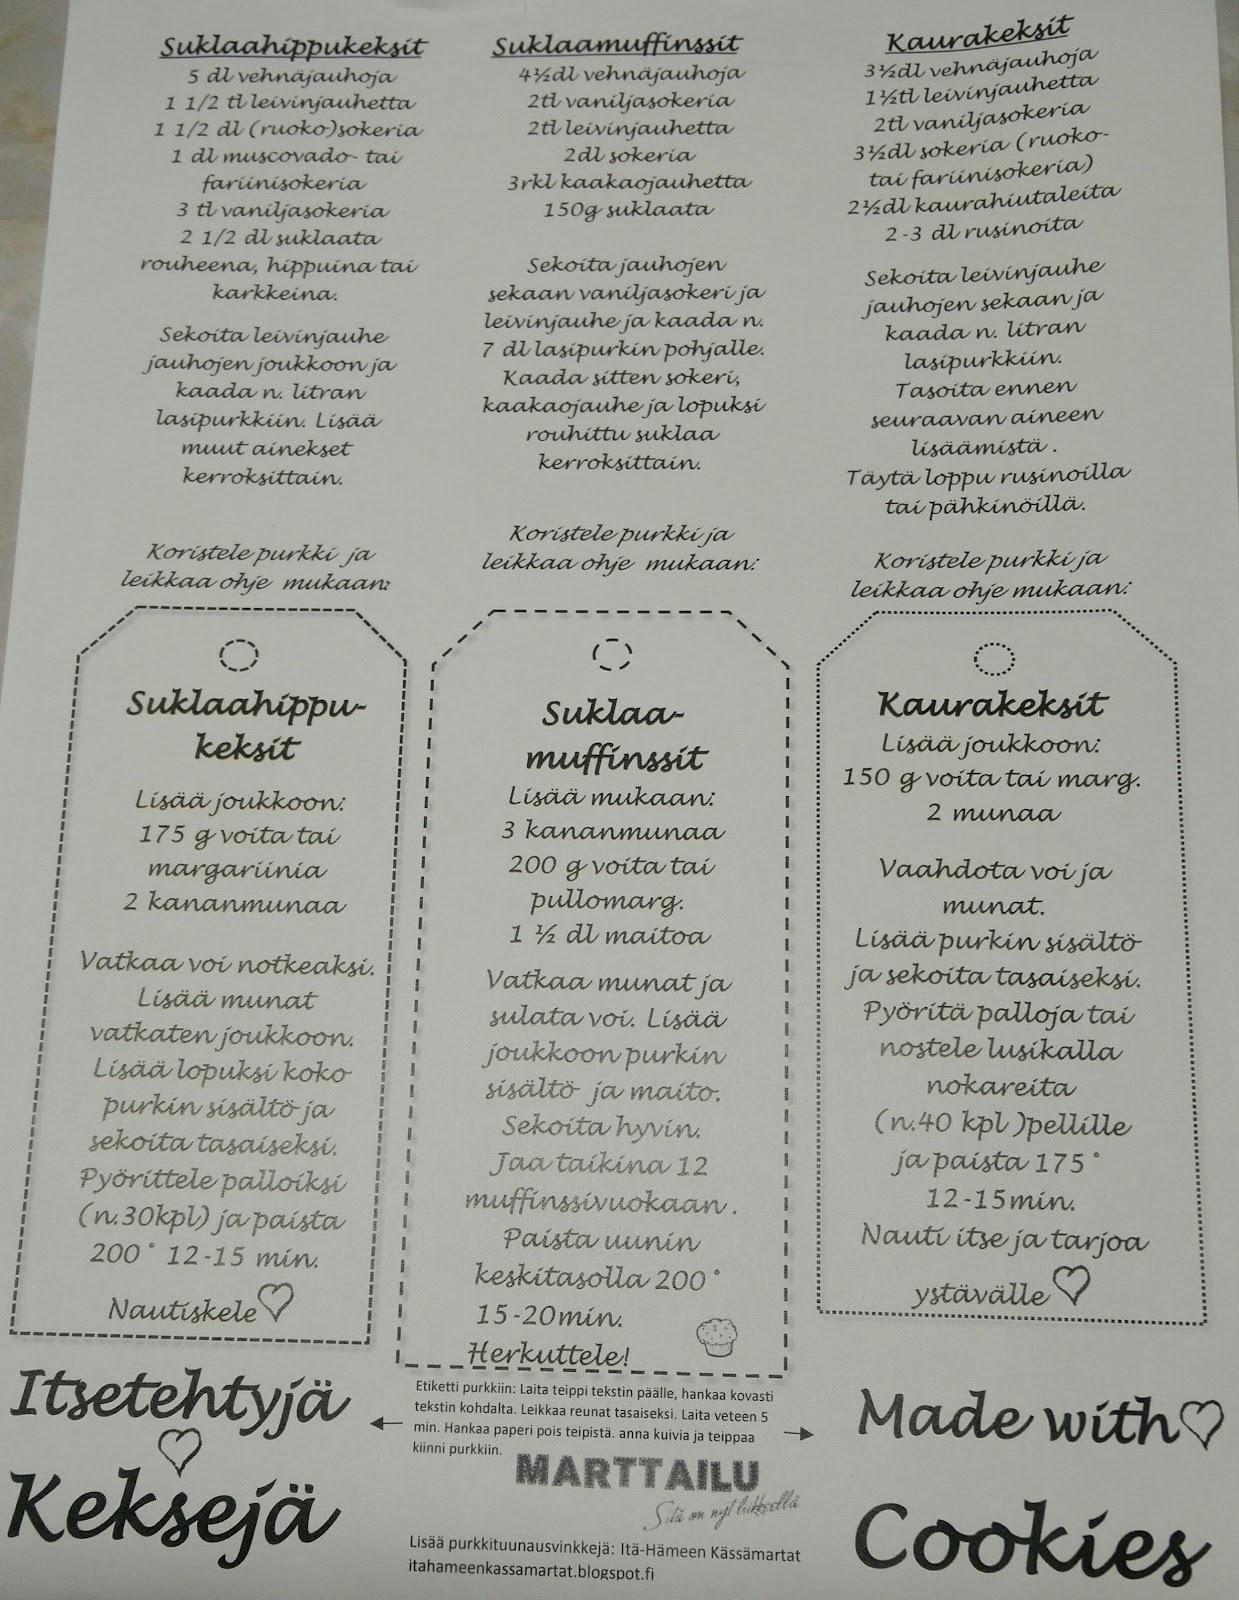 Suklaahippukeksit
5 dl vehnäjauhoja
1 1/2 tl leivinjauhetta
1 1/2 dl (ruoko)sokeria
1 dl muscovado- tai
fariinisokeria
3 tl vaniljasokeria
2 1/2 dl suklaata
rouheena, hippuina tai
karkkeina.
Sekoita leivinjauhe
jauhojen joukkoon ja
kaada n. litran
lasipurkkiin. Lisää
muut ainekset
kerroksittain.
Koristele purkki ja
leikkaa ohje mukaan:
Suklaamuffinssit
4½dl vehnäjauhoja
2tl vaniljasokeria
2tl leivinjauhetta
2dl sokeria
3rkl kaakaojauhetta
150g suklaata
Sekoita jauhojen
sekaan vaniljasokeri ja
leivinjauhe ja kaada n.
7 dl lasipurkin pohjalle.
Kaada sitten sokeri,
kaakaojauhe ja lopuksi
rouhittu suklaa
kerroksittain.
Koristele purkki ja
leikkaa ohje mukaan:
Kaurakeksit
3½dl vehnäjauhoja
1½tl leivinjauhetta
2tl vaniljasokeria
3½dl sokeria (ruoko-
tai fariinisokeria)
2½dl kaurahiutaleita
2-3 dl rusinoita
Sekoita leivinjauhe
jauhojen sekaan ja
kaada n. litran
lasipurkkiin.
Tasoita ennen
seuraavan aineen
lisäämistä .
Täytä loppu rusinoilla
tai pähkinöillä.
Koristele purkki ja
leikkaa ohje mukaan:
Suklaahippu-
keksit
Lisää joukkoon:
175 g voita tai
margariinia
2 kananmunaa
Vatkaa voi notkeaksi.
Lisää munat
vatkaten joukkoon.
Lisää lopuksi koko
purkin sisältö ja
sekoita tasaiseksi.
Pyörittele palloiksi
(n.30kpl) ja paista
200˚ 12-15 min.
Nautiskele
Suklaa-
muffinssit
Lisää mukaan:
3 kananmunaa
200 g voita tai
pullomarg.
1 ½ dl maitoa
Vatkaa munat ja
sulata voi. Lisää
joukkoon purkin
sisältö ja maito.
Sekoita hyvin.
Jaa taikina 12
muffinssivuokaan .
Paista uunin
keskitasolla 200˚
15-20min.
Herkuttele!
Kaurakeksit
Lisää joukkoon:
150 g voita tai marg.
2 munaa
Vaahdota voi ja
munat.
Lisää purkin sisältö
ja sekoita tasaiseksi.
Pyöritä palloja tai
nostele lusikalla
nokareita
(n.40 kpl )pellille
ja paista 175˚
12-15min.
Nauti itse ja tarjoa
ystävälle
Itsetehtyjä
Keksejä
Etiketti purkkiin: Laita teippi tekstin päälle, hankaa kovasti
tekstin kohdalta. Leikkaa reunat tasaiseksi. Laita veteen 5
min. Hankaa paperi pois teipistä. anna kuivia ja teippaa
kiinni purkkiin.
MARTTAILU
Sitä on nyt liikkeellä
Lisää purkkituunausvinkkejä: Itä-Hämeen Kässämartat
itahameenkassamartat.blogspot.fi
Made with
Cookies